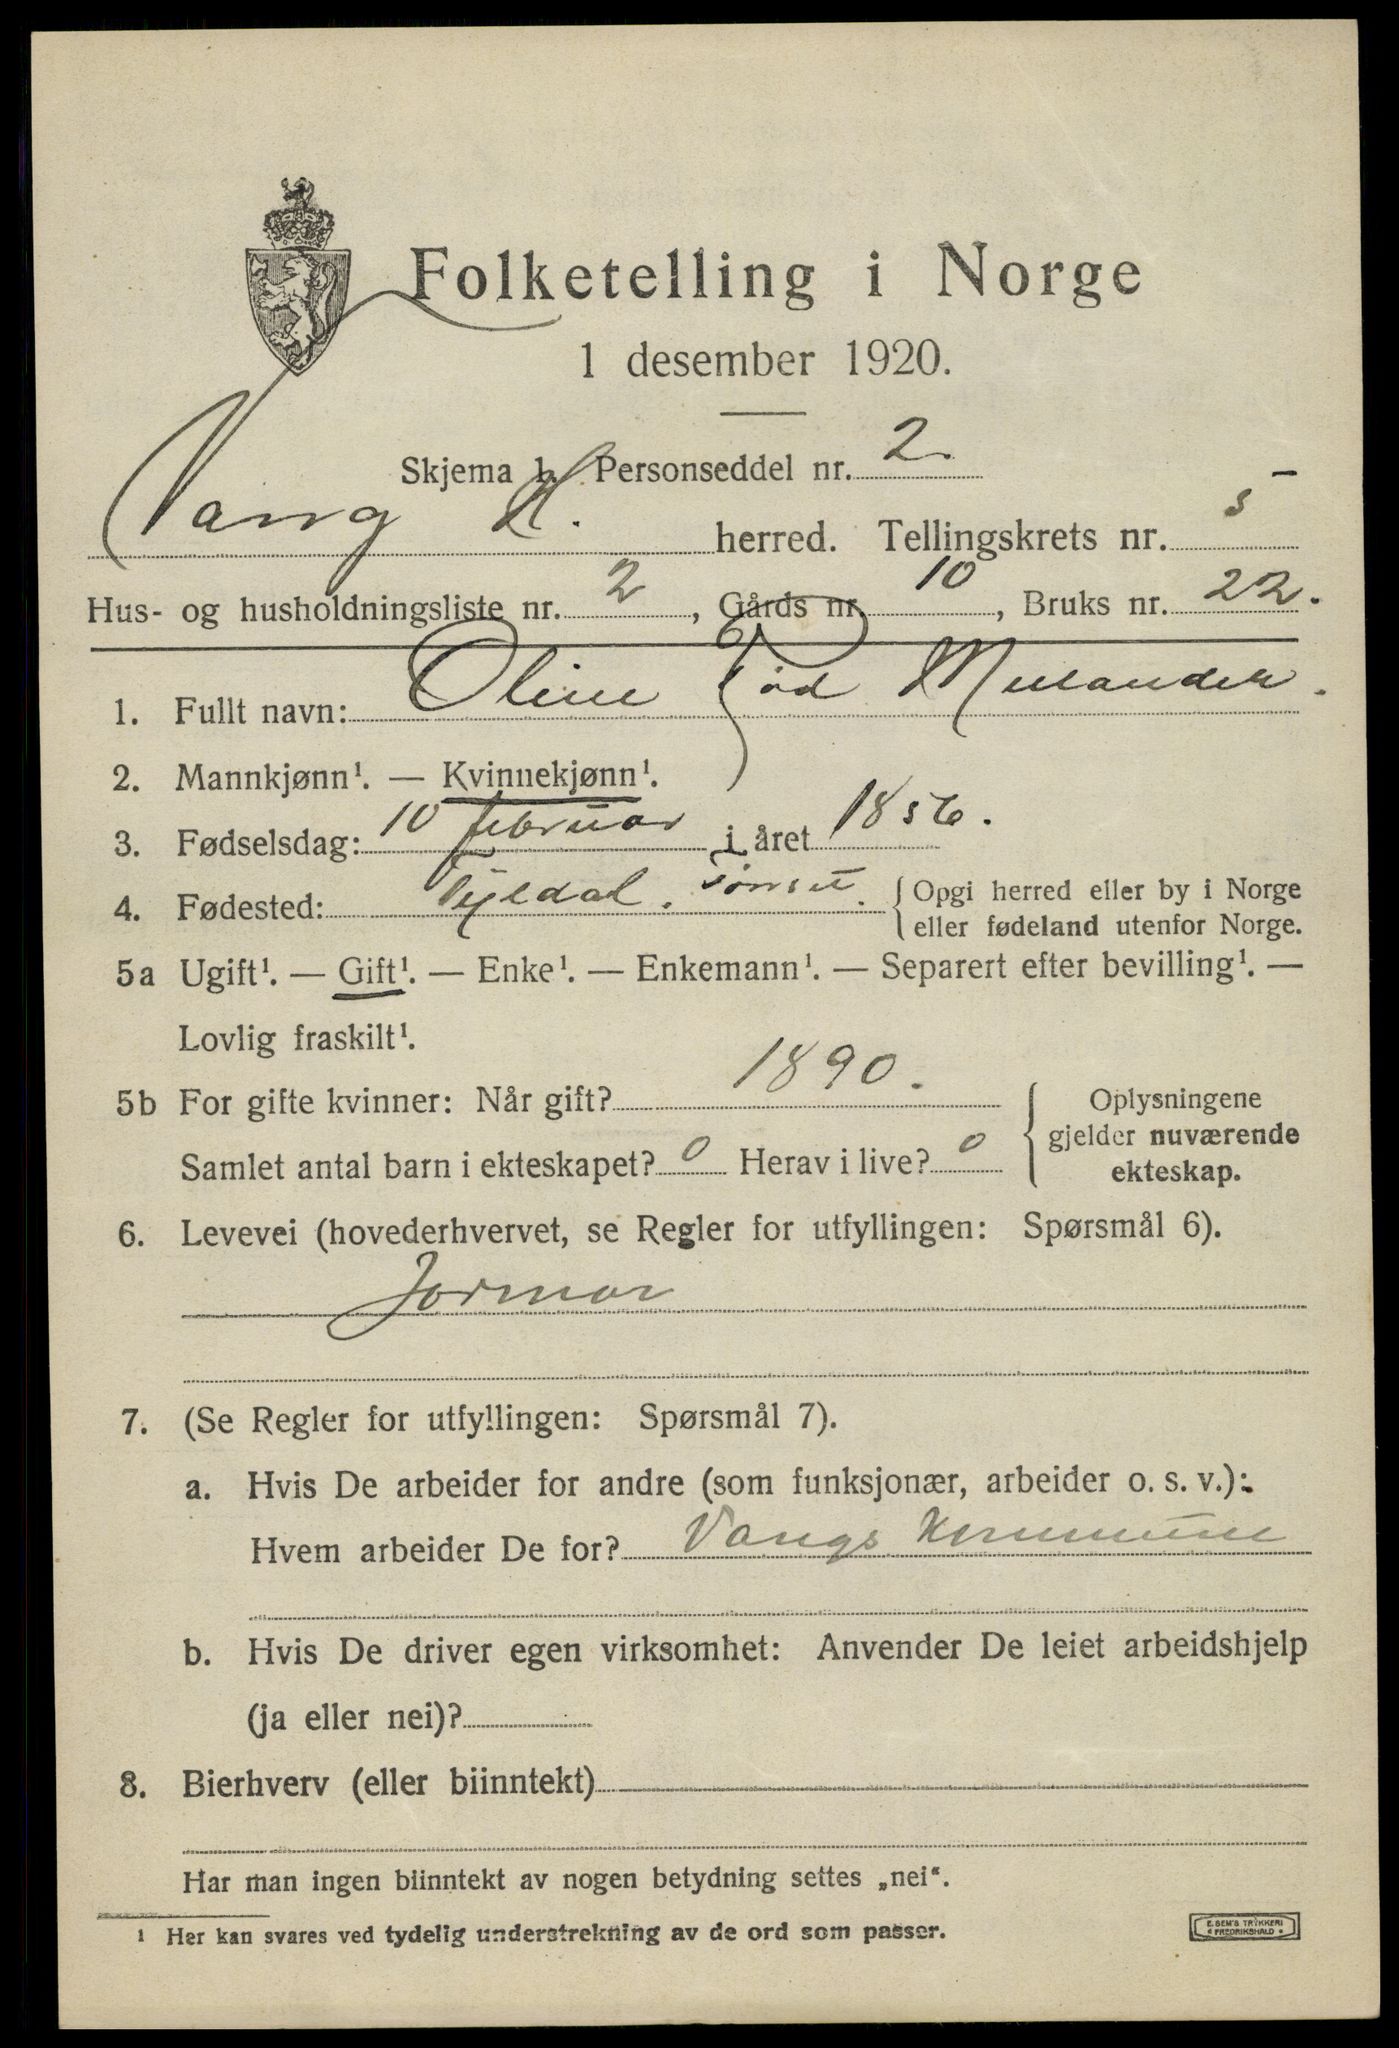 Folketelling i Norge
1 desember 1920.
Skjema 1. Personseddel nr. 2.
Vang H. herred. Tellingskrets nr. 5
Hus- og husholdningsliste nr. 2, Gårds nr. 10, Bruks nr. 22.
1. Fullt navn: Oline
2. Mannkjønn¹. — Kvinnekjønn¹.
3. Fødselsdag: 10 februar i året 1856.
4. Fødested: Tyldal. Tönset. { Opgi herred eller by i Norge
eller fødeland utenfor Norge.
5a Ugift¹. — Gift¹. — Enke¹. — Enkemann¹. — Separert efter bevilling¹. —
Lovlig fraskilt¹.
5b For gifte kvinner: Når gift? 1890.
Samlet antal barn i ekteskapet? 0 Herav i live? 0
Oplysningene
gjelder nuværende
ekteskap.
6. Levevei (hovederhvervet, se Regler for utfyllingen: Spørsmål 6).
Jormor
7. (Se Regler for utfyllingen: Spørsmål 7).
a. Hvis De arbeider for andre (som funksjonær, arbeider o. s. v.):
Hvem arbeider De for? Vangs Kommune
b. Hvis De driver egen virksomhet: Anvender De leiet arbeidshjelp
(ja eller nei)?
8. Bierhverv (eller biinntekt)
Har man ingen biinntekt av nogen betydning settes „nei“.
¹ Her kan svares ved tydelig understrekning av de ord som passer.
E. SEM'S TRYKKERI
FREDRIKSHALD